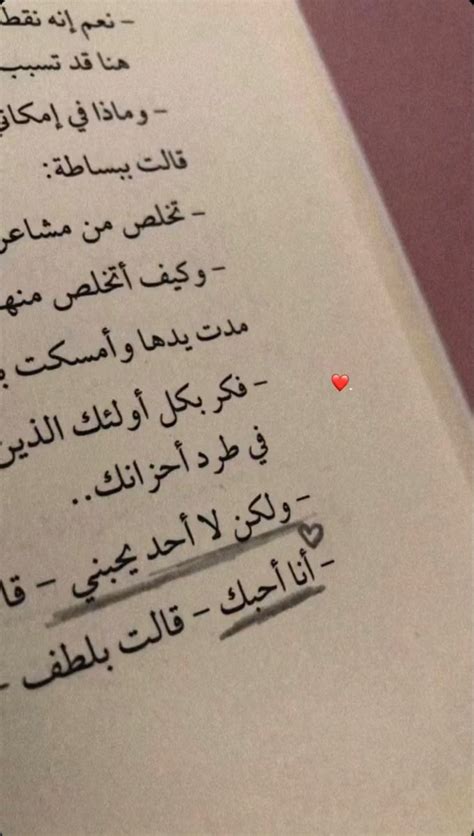 - نعم إنه نقط
هنا قد تسبب
- وماذا في إمكاني
قالت ببساطة:
- تخلص من مشاعر
- وكيف أتخلص منه
مدت يدها وأمسكت
- فكر بكل أولئك الذين
في طرد أحزانك..
- ولكن لا أحد يحبني - قا
- أنا أحبك - قالت بلطف -